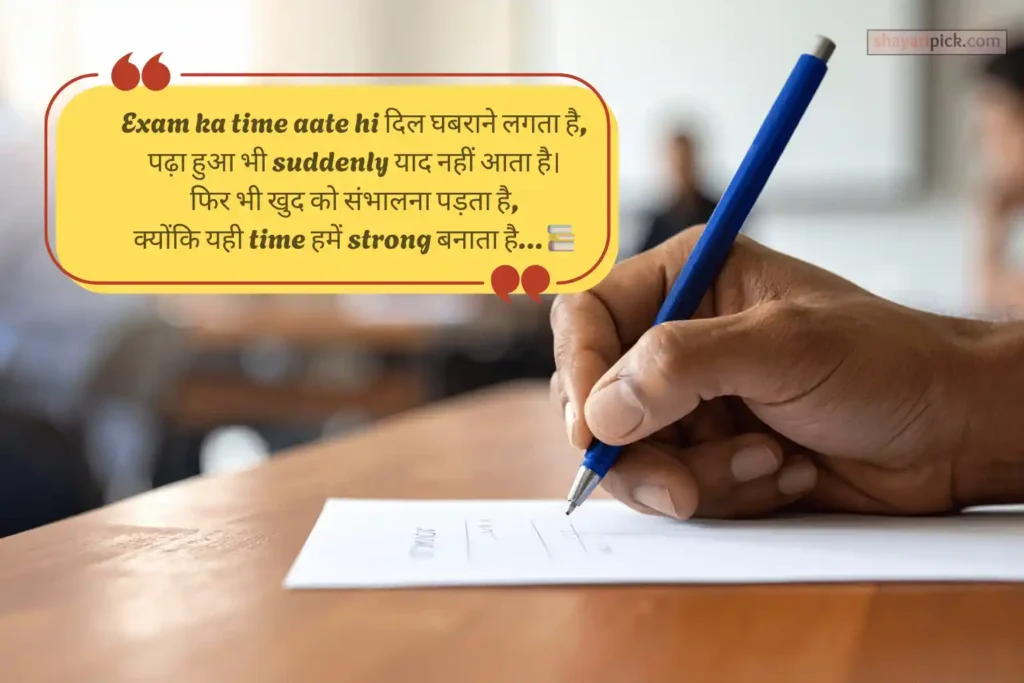 shayaripick.com
Exam ka time aate hi दिल घबराने लगता है,
पढ़ा हुआ भी suddenly याद नहीं आता है।
फिर भी खुद को संभालना पड़ता है,
क्योंकि यही time हमें strong बनाता है...📚